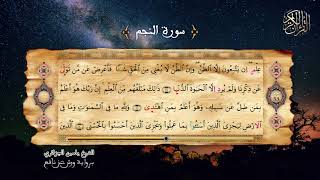 سورة النجم
عِلْمٍ اِنْ يَّتَّبِعُونَ إِلَّا اَلظَّنَّ وَإِنَّ اَلظَّنَّ لَا يُغْنِي مِنَ اَلْحَقِّ شَيْـٔاً فَأَعْرِضْ عَن مَّن تَوَلّ۪يٰ
عَن ذِكْرِنَا وَلَمْ يُرِدِ اِلَّا اَلْحَيَوٰةَ اَلدُّنْي۪ا ذَٰلِكَ مَبْلَغُهُم مِّنَ اَلْعِلْمِۖ إِنَّ رَبَّكَ هُوَ أَعْلَمُ
بِمَن ضَلَّ عَن سَبِيلِهِۦ وَهُوَ أَعْلَمُ بِمَنِ اِهْتَد۪يٰ وَلِلهِ مَا فِي اِلسَّمَٰوَٰتِ وَمَا فِي
اِلَارْضِ لِيَجْزِيَ اَلذِينَ أَسَٰٓـُٔواْ بِمَا عَمِلُواْ وَيَجْزِيَ اَلذِينَ أَحْسَنُواْ بِالْحُسْنَي اَلذِينَ
الشيخ ياسين الجزائري
برواية ورش عن نافع